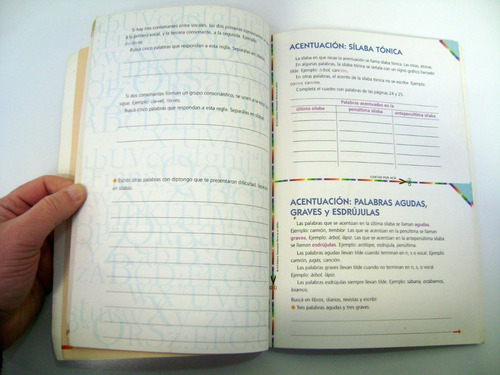 Si hay tres consonantes entre vocales, las dos primeras consonantes
a la primera vocal, y la tercera consonante, a la segunda. Ejemplo:
Buscá cinco palabras que respondan a esta regla. Separalas en
Si dos consonantes forman un grupo consonántico, se unen a la
sigue. Ejemplo: clavel,
Buscá cinco palabras que respondan a esta regla. Separalas en sílabas.
Escribí otras palabras con diptongo que te presentaron dificultad.
en sílabas.
ACENTUACIÓN: SÍLABA TÓNICA
La sílaba en que recae la acentuación se llama sílaba tónica. Las otras, átonas.
En algunas palabras, la sílaba tónica se señala con un signo gráfico llamado
tilde. Ejemplo: árbol, canción.
En otras palabras, el acento de la sílaba tónica no se escribe. Ejemplo:
Completá el cuadro con palabras de las páginas 24 y 25.
Palabras acentuadas en la
última sílaba penúltima sílaba antepenúltima sílaba
CORTAR POR ACÁ
ACENTUACIÓN: PALABRAS AGUDAS,
GRAVES Y ESDRÚJULAS
Las palabras que se acentúan en la última sílaba se llaman agudas.
Ejemplo: camión, temblor. Las que se acentúan en la penúltima se llaman
graves. Ejemplo: árbol, lápiz. Las que se acentúan en la antepenúltima sílaba
se llaman esdrújulas. Ejemplo: antílope, esdrújula, penúltima.
Las palabras agudas llevan tilde cuando terminan en n, s o vocal. Ejemplo:
camión, jugás, canción.
Las palabras graves llevan tilde cuando no terminan en n, s o vocal.
Ejemplo: árbol, lápiz.
Las palabras esdrújulas llevan tilde siempre. Ejemplo: sábana, estábamos,
Buscá en libros, diarios, revistas y escribí:
Tres palabras agudas y tres graves.